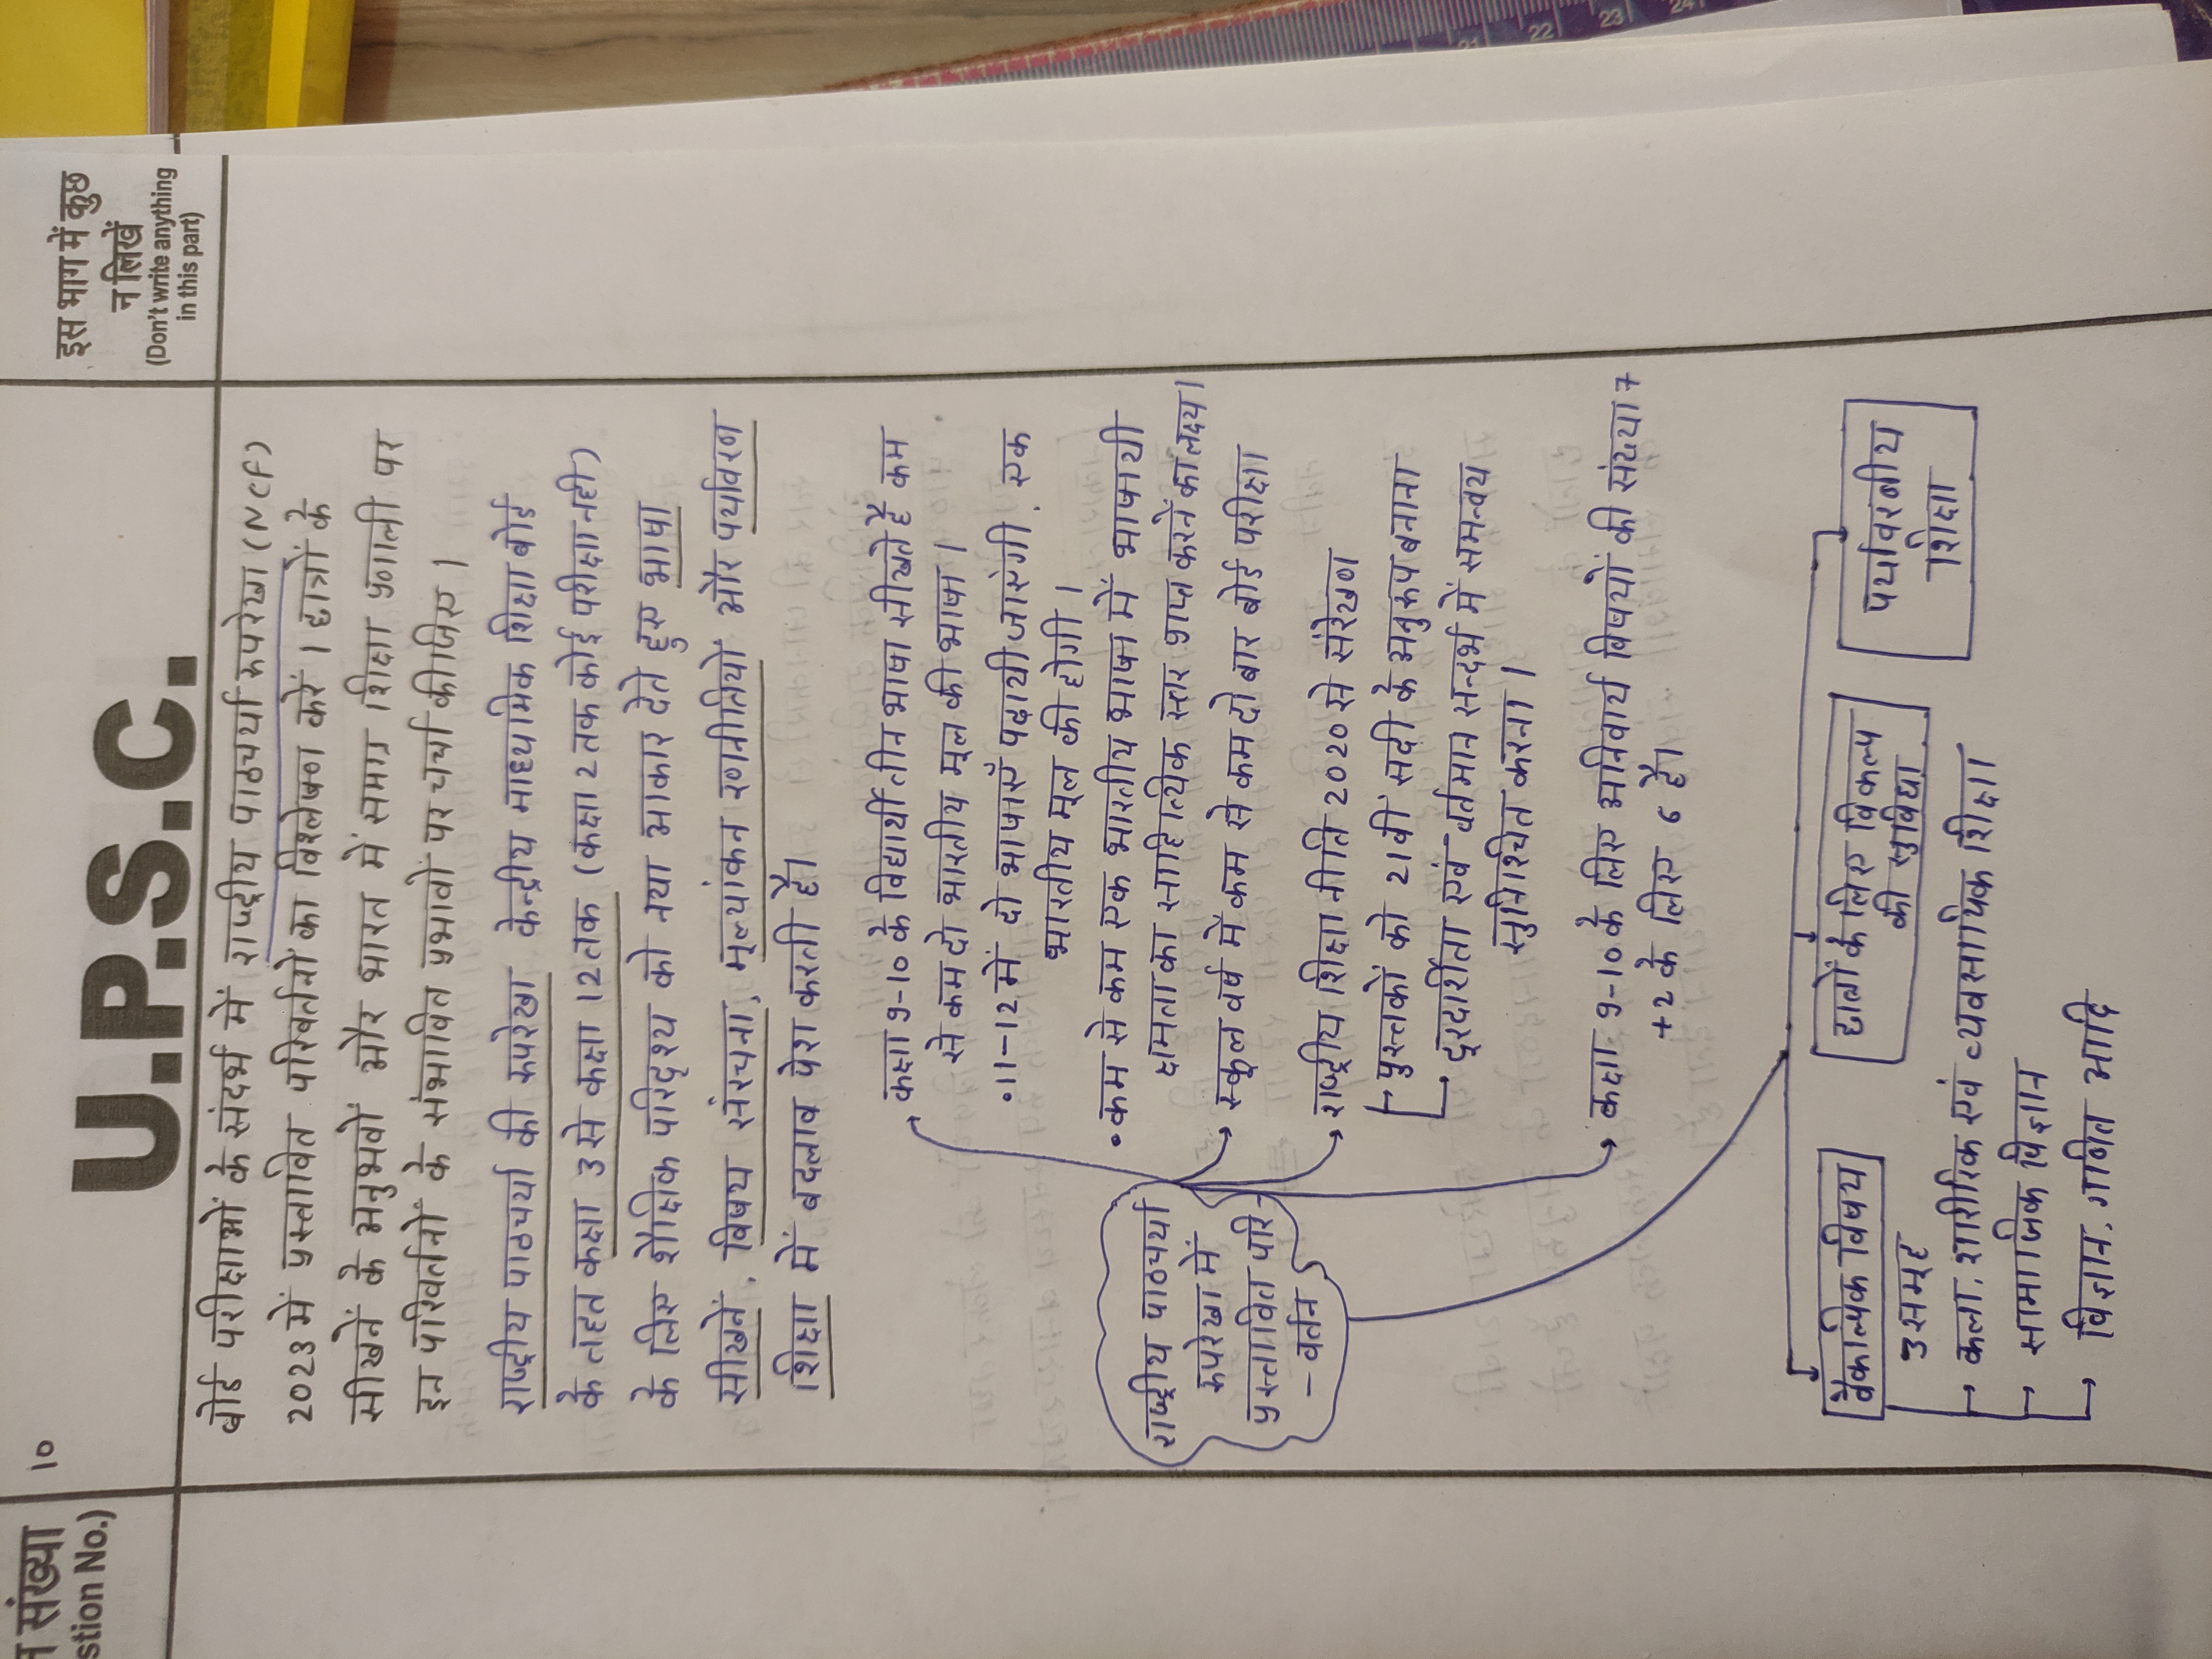 न संख्या
stion No.)
10
U.P.S.C.
इस भाग में कुछ
न लिखें
(Don't write anything
in this part)
बोर्ड परीक्षाओं के संदर्भ में राष्ट्रीय पाठचर्या रूपरेखा (NCF)
2023 में प्रस्तावित परिवर्तनों का विश्लेषण करें । छात्रों के
सीखनें के अनुभवों और भारत में समग्र शिक्षा प्रणाली पर
इन परिवर्तनों के संभावित प्रभावों पर चर्चा कीजिए ।
राष्ट्रीय पाठचर्या की रूपरेखा केन्द्रीय माध्यमिक शिक्षा बोर्ड
के तहत कक्षा 3 से कक्षा 12 तक (कक्षा 2 तक कोई परीक्षा नही)
के लिए शैक्षिक परिदृश्य को नया आकार देते हुए भाषा
सीखनें, विषय संरचना, मूल्यांकन रणनीतियों और पर्यावरण
शिक्षा में बदलाव पेश करती है।
कक्षा 9-10 के विद्यार्थी तीन भाषा सीखते हैं कम
से कम दो भारतीय मूल की भाषा ।
• 11-12 में दो भाषाएँ पढायी जाएंगी, एक
भारतीय मूल की होगी ।
• कम से कम एक भारतीय भाषा में भाषायी
क्षमता का साहित्यिक स्तर प्राप्त करनें का लक्ष्य ।
स्कूल वर्ष में कम से कम दो बार बोर्ड परीक्षा
राष्ट्रीय पाठचर्या
रूपरेखा में
प्रस्तावित परि
– वर्तन
राष्ट्रीय शिक्षा नीति 2020 से संरेखण
पुस्तकों को 21वीं सदी के अनुरूप बनाना
दूरदर्शिता एवं वर्तमान सन्दर्भ में समन्वय
सुनिश्चित करना ।
कक्षा 9-10 के लिए अनिवार्य विषयों की संख्या 7
+2 के लिए 6 है।
वैकल्पिक विषय
3 समूह
कला, शारीरिक एवं व्यवसायिक शिक्षा
सामाजिक विज्ञान
विज्ञान, गणित आदि
छात्रों के लिए विकल्प
की सुविधा
पर्यावरनीय
शिक्षा